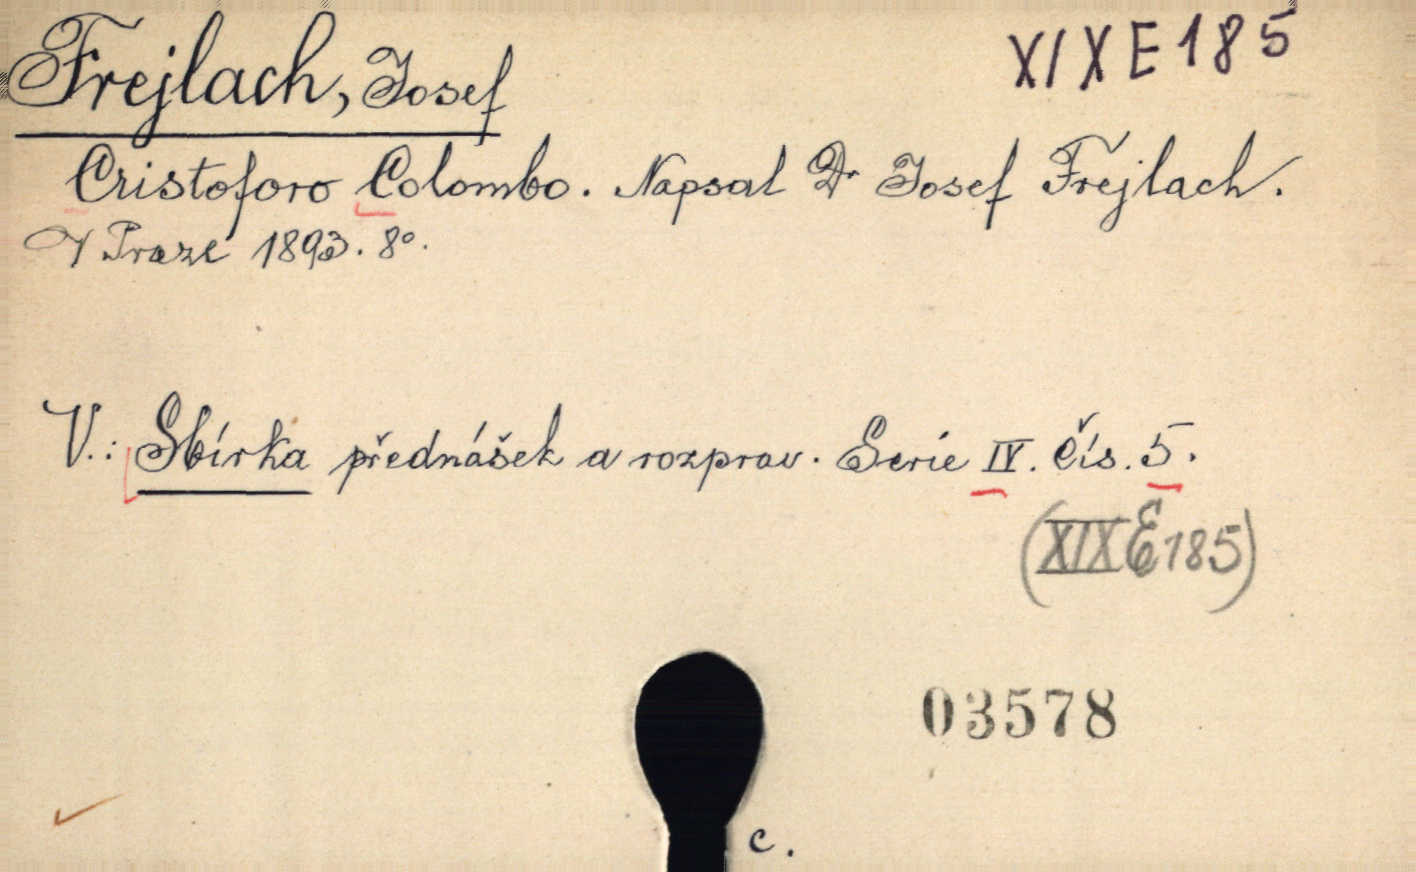 XIX E 185
Frejlach, Josef
Cristoforo Colombo. Napsal Dr Josef Frejlach.
V Praze 1893. 8°.
V.: Sbírka přednášek a rozprav. Serie IV. čís. 5.
(XIX E 185)
03578
c.